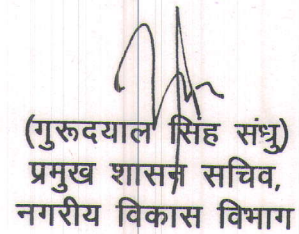 (गुरूदयाल सिंह संधु)
प्रमुख शासन सचिव,
नगरीय विकास विभाग